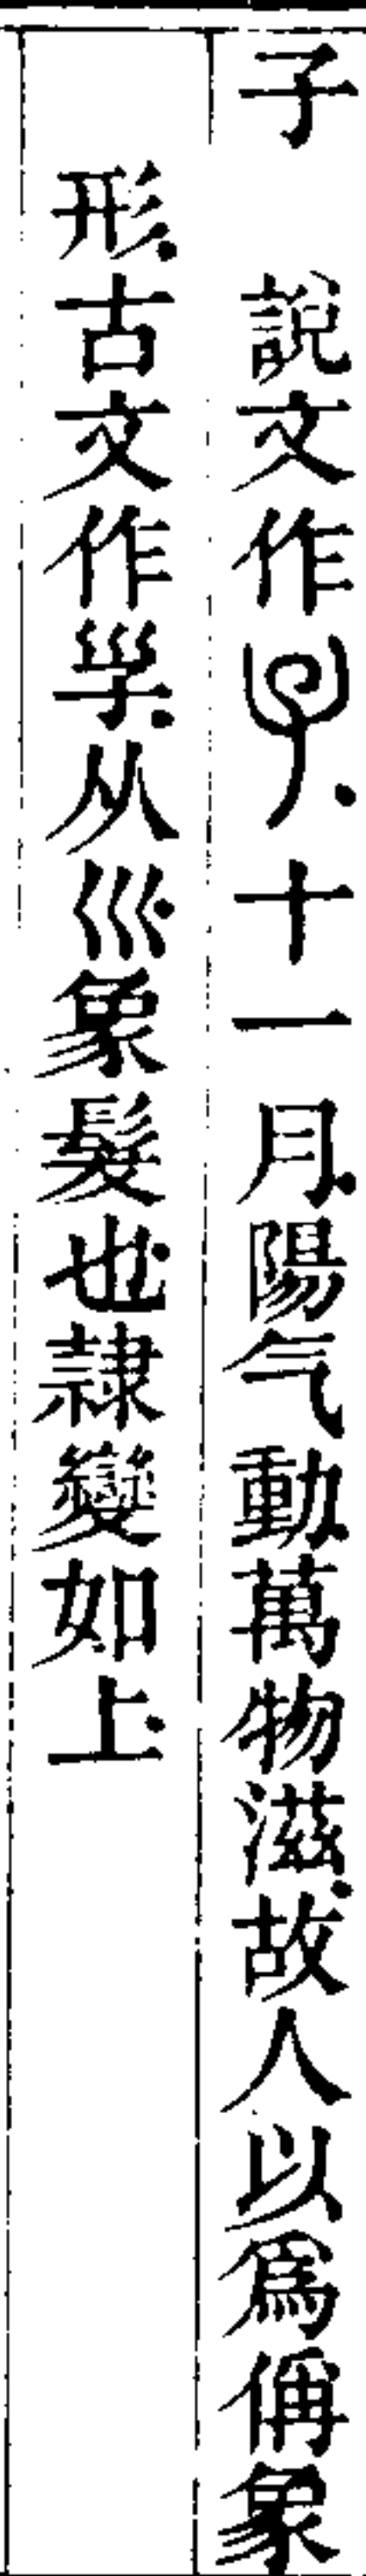 子　說文作𢀇.十一月.陽气動.萬物滋.故人以爲偁象
形.古文作㜽.从巛.象髮也.隷變如上.